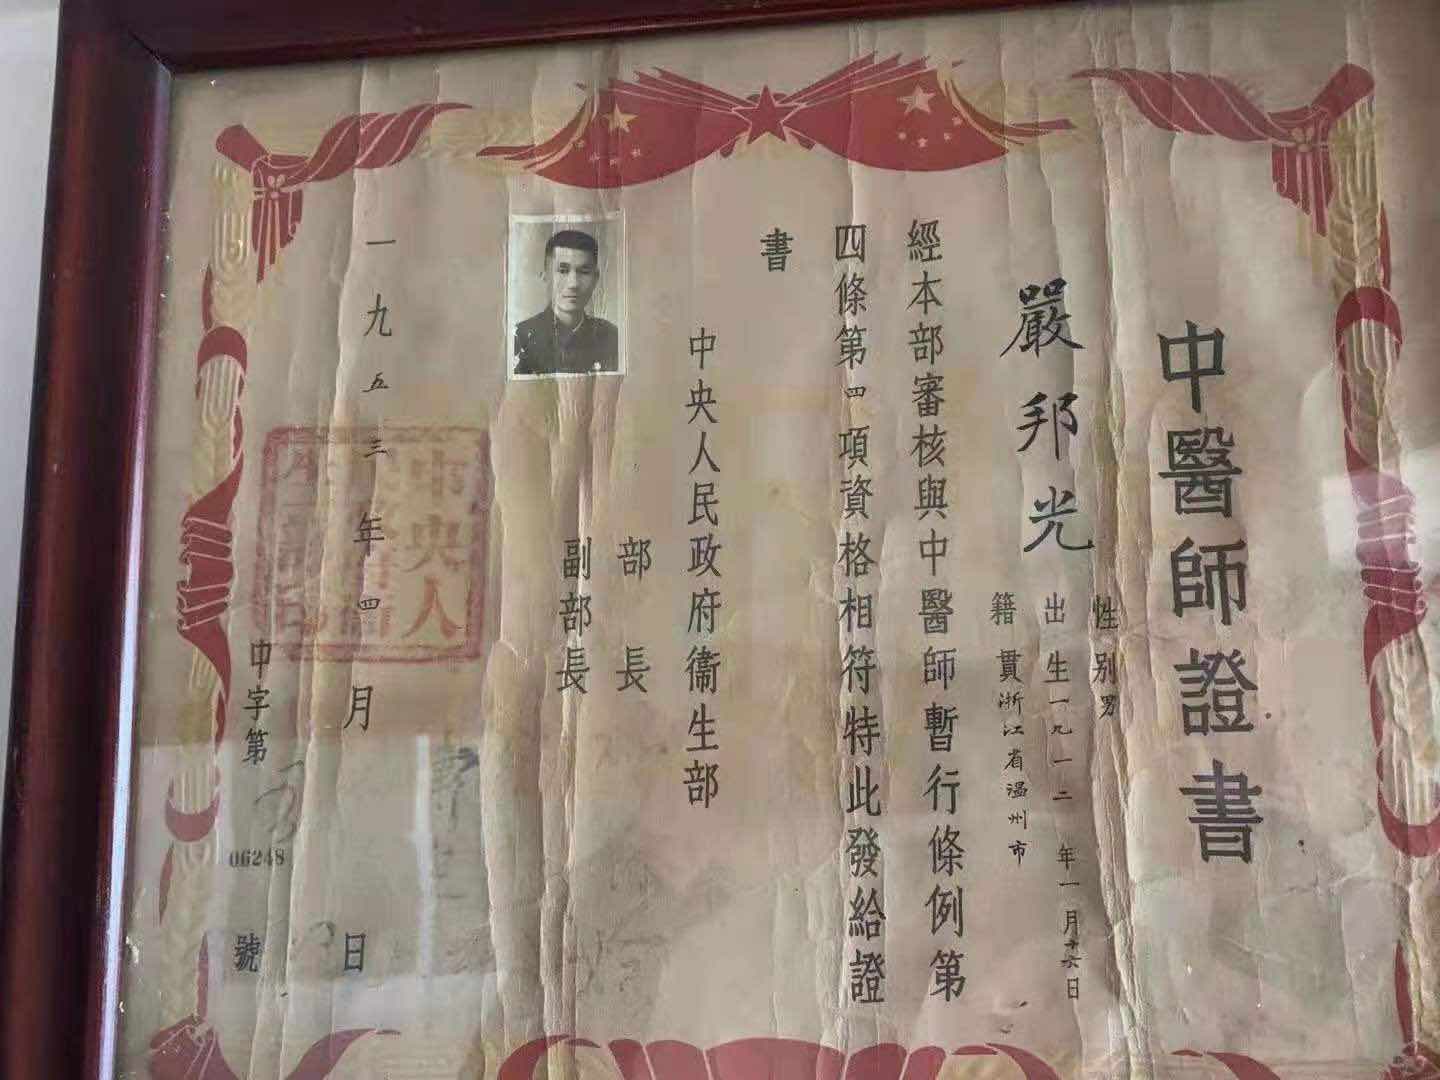 中醫師證書
嚴邦光
性别男
出生一九一二年一月十六日
籍貫浙江省温州市
經本部審核與中醫師暫行條例第
四條第四項資格相符特此發給證
書
中央人民政府衞生部
部長
副部長
一九五三年四月 日
中央人
中字第06248號